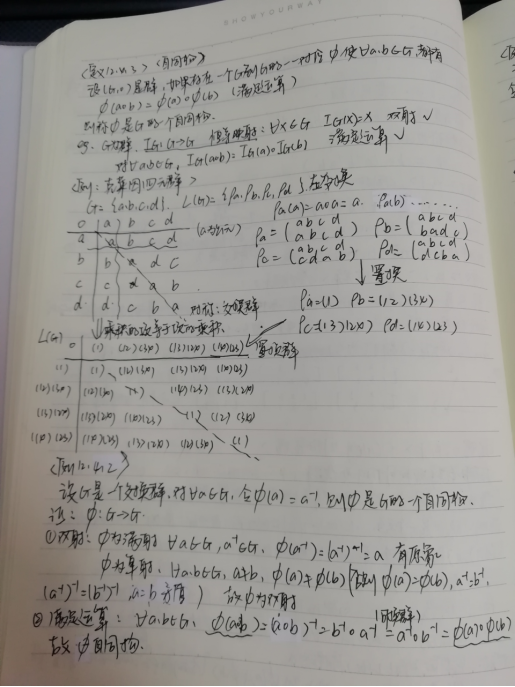 <定义12.4.3> <自同构>
设(G,∘)是群,如果存在一个G到G的一一对应φ使∀a.b∈G,都有
φ(a∘b)=φ(a)∘φ(b) (满足运算)
则称φ是G的一个自同构.
G为群. I_G:G→G 恒等映射:∀x∈G I_G(x)=x 双射✓
对∀a.b∈G, I_G(a∘b)=I_G(a)∘I_G(b) 满足运算✓
<例:克莱因四元群>
G={a.b.c.d}. L(G)={ρa.ρb.ρc.ρd}.左变换
∘ a b c d
a a b c d
b b a d c
c c d a b
d d c b a 对称:交换群
ρa(a)=a∘a=a. ρa(b)......
ρa=(a b c d / a b c d) ρb=(a b c d / b a d c)
ρc=(a b c d / c d a b) ρd=(a b c d / d c b a)
↓置换
ρa=(1) ρb=(12)(34)
ρc=(13)(24) ρd=(14)(23)
L(G) ∘ (1) (12)(34) (13)(24) (14)(23) 置换群
(1) (1) (12)(34) (13)(24) (14)(23)
(12)(34) (12)(34) (1) (14)(23) (13)(24)
(13)(24) (13)(24) (14)(23) (1) (12)(34)
(14)(23) (14)(23) (13)(24) (12)(34) (1)
<例12.4.2>
设G是一个交换群.对∀a∈G,令φ(a)=a⁻¹,则φ是G的一个自同构.
证:φ:G→G.
①双射:φ为满射 ∀a∈G,a⁻¹∈G. φ(a⁻¹)=(a⁻¹)⁻¹=a 有原象
φ为单射. ∀a.b∈G, a≠b, φ(a)≠φ(b)(否则φ(a)=φ(b), a⁻¹=b⁻¹.
(a⁻¹)⁻¹=(b⁻¹)⁻¹ a=b 矛盾) 故φ为双射
②满足运算:∀a.b∈G, φ(a∘b)=(a∘b)⁻¹=b⁻¹∘a⁻¹=a⁻¹∘b⁻¹=φ(a)∘φ(b)
故φ自同构.